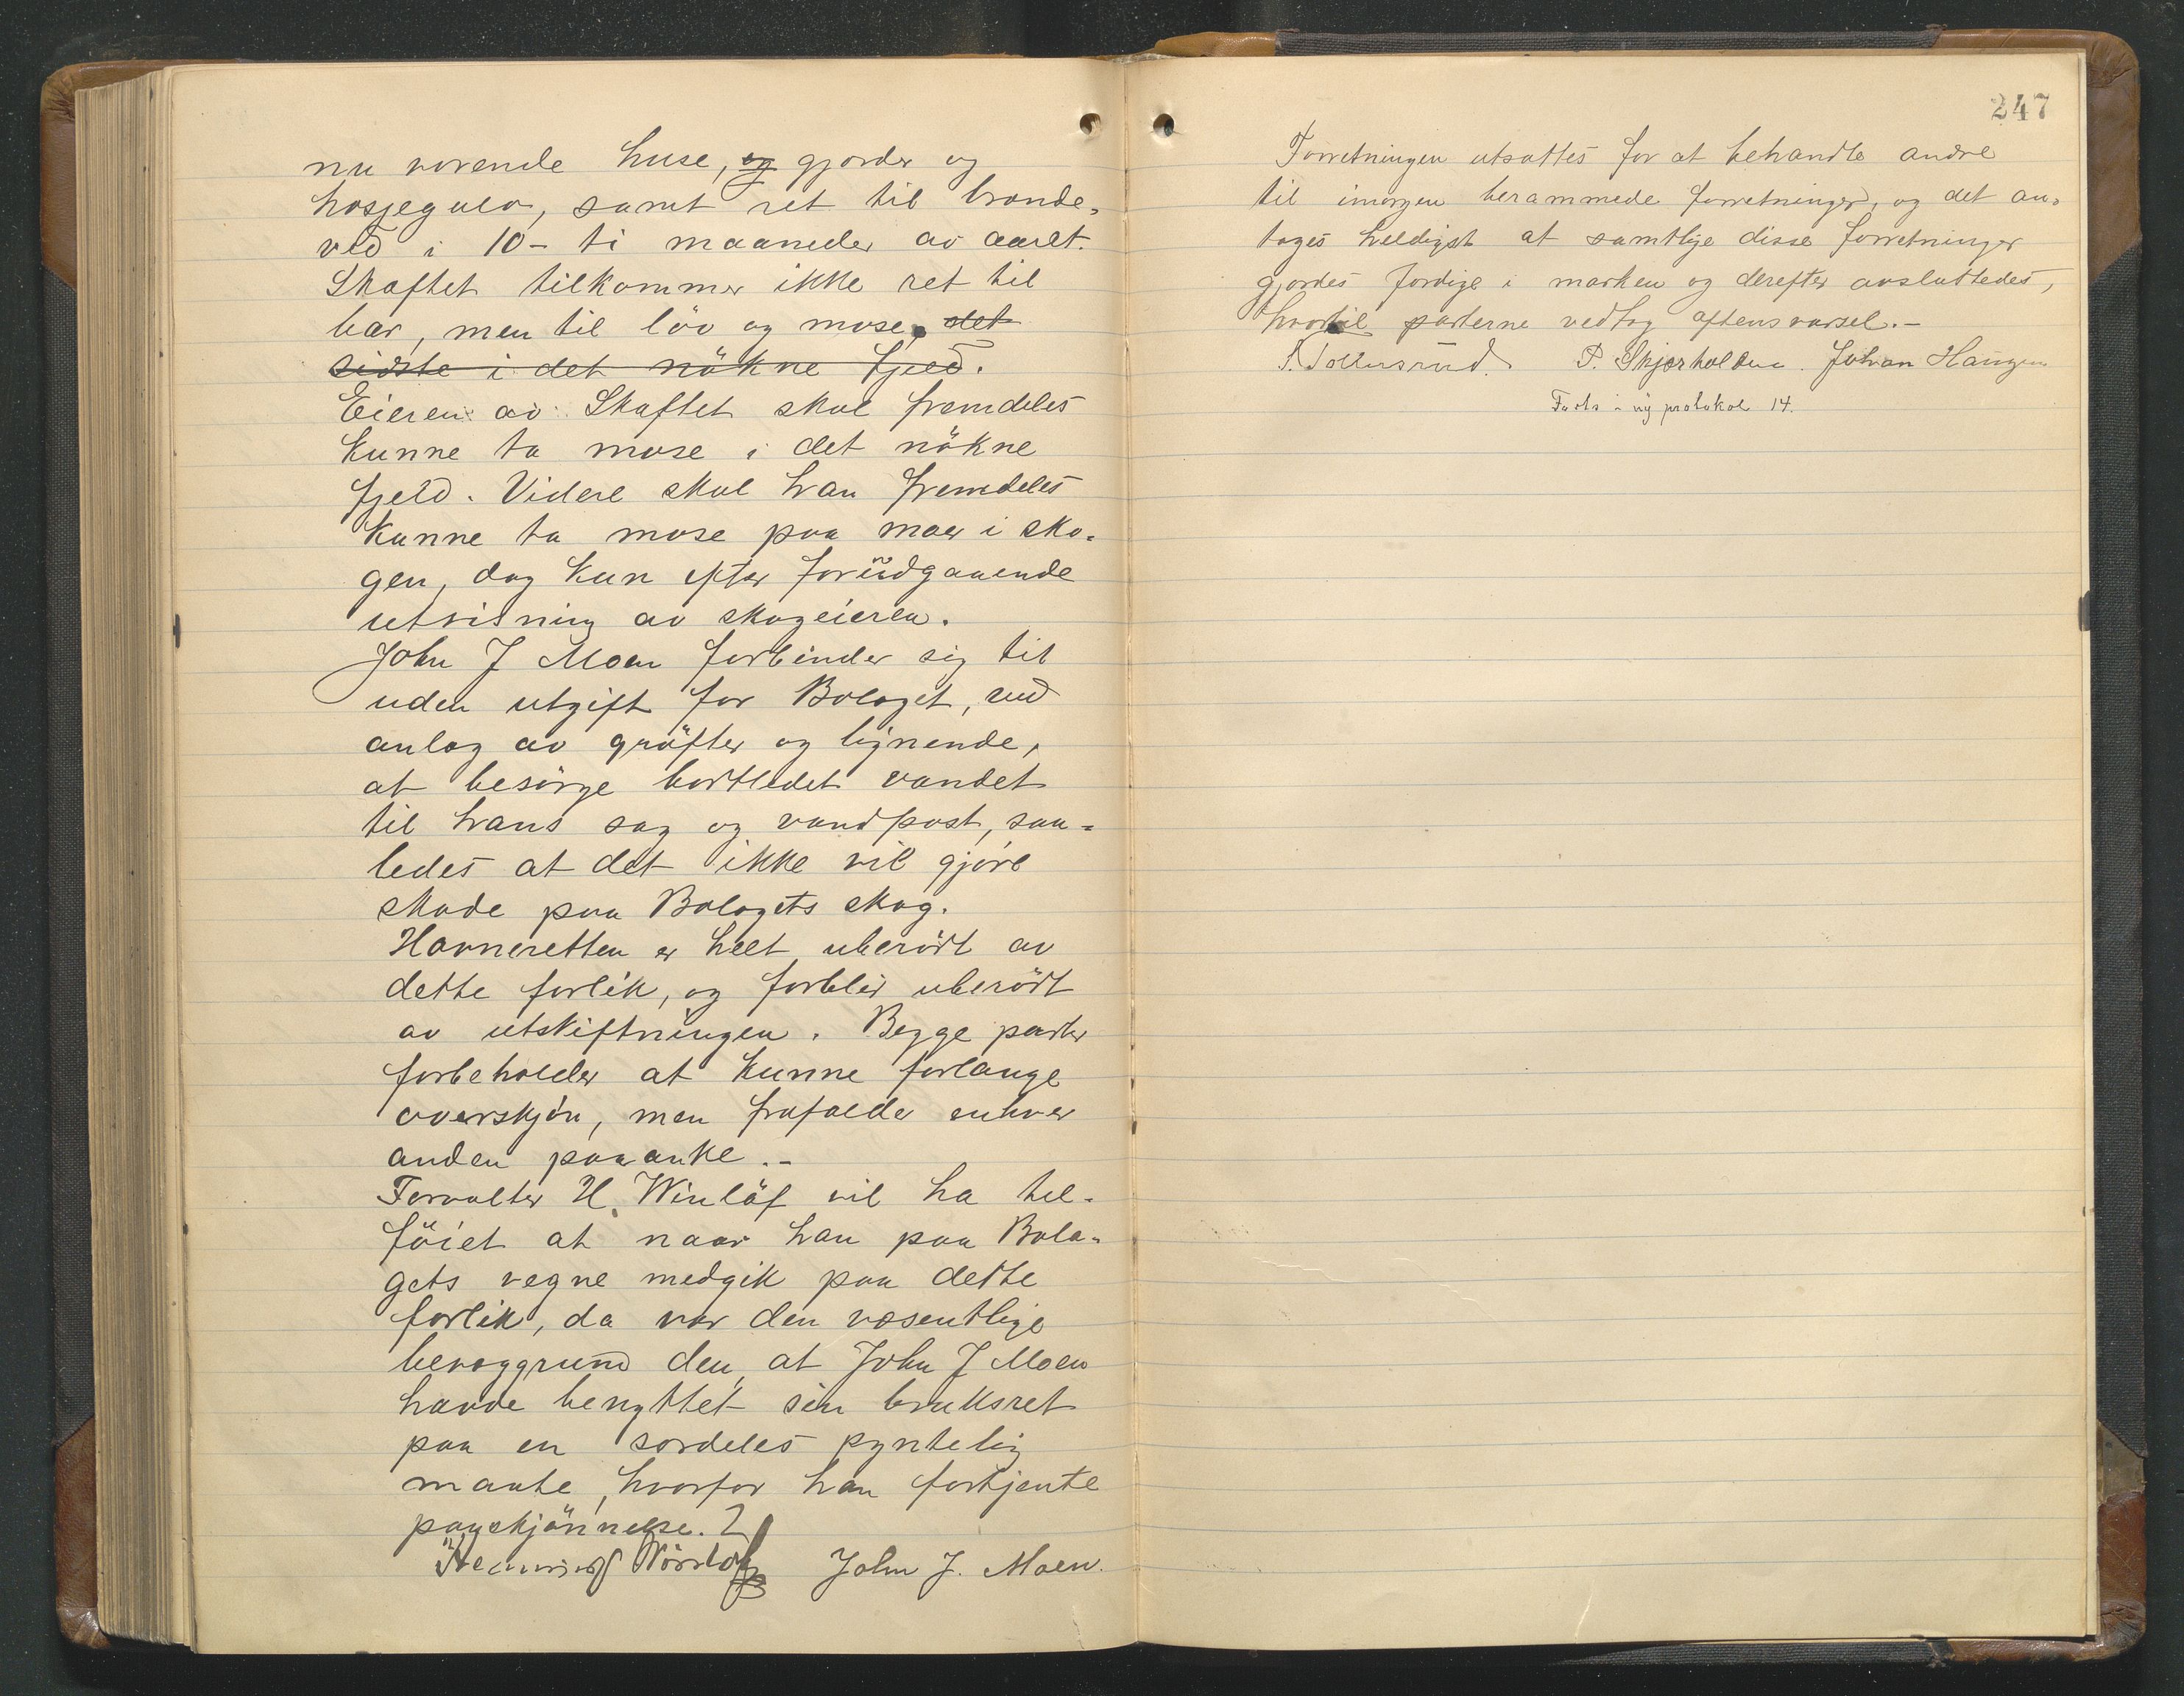 nu værende huse, og gjærder og
hæsjegulv, samt ret til brænde-
ved i 10 - ti maaneder av aaret.
Skaftet tilkommer ikke ret til
bær, men til löv og mose, det
sidste i det nökne fjeld.
Eieren av Skaftet skal fremdeles
kunne ta mose i det nökne
fjeld. Videre skal han fremdeles
kunne ta mose paa moer i sko-
gen, dog kun efter forudgaaende
utvisning av skogeieren.
John J Moen forbinder sig til
uden utgift for Bolaget, ved
anlæg av gröfter og lignende,
at besörge bortledet vandet
til hans sag og vandpost, saa-
ledes at det ikke vil gjöre
skade paa Bolagets skog.
Havneretten er helt uberört av
dette forlik, og forblir uberört
av utskiftningen. Begge parter
forbeholder at kunne forlange
overskjön, men frafalder enhver
anden paaanke.-
Forvalter H. Winlöf vil ha til-
föiet at naar han paa Bola-
gets vegne medgik paa dette
forlik, da var den væsentlige
bevæggrund den, at John J Moen
havde benyttet sin bruksret
paa en særdeles pyntelig
maate, hvorfor han fortjente
paaskjönnelse.
John J. Moen.
247
Forretningen utsattes for at behandle andre
til imorgen berammede forretninger, og det an-
toges heldigst at samtlige disse forretninger
gjordes færdige i marken og derefter avsluttedes,
hvortil parterne vedtog aftensvarsel.-
S. Sollusrud. P. Skjærholden. Johan Haugen
Forts i ny protokol 14.